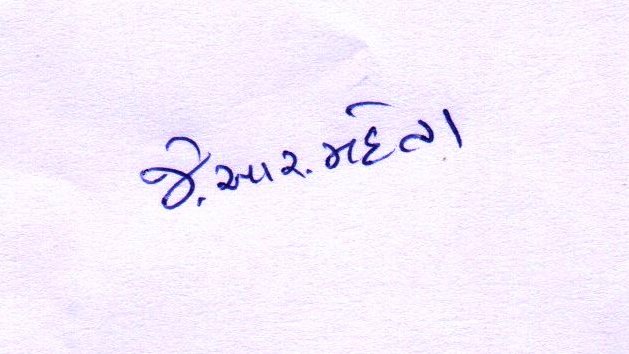 જે. આર. મહેતા